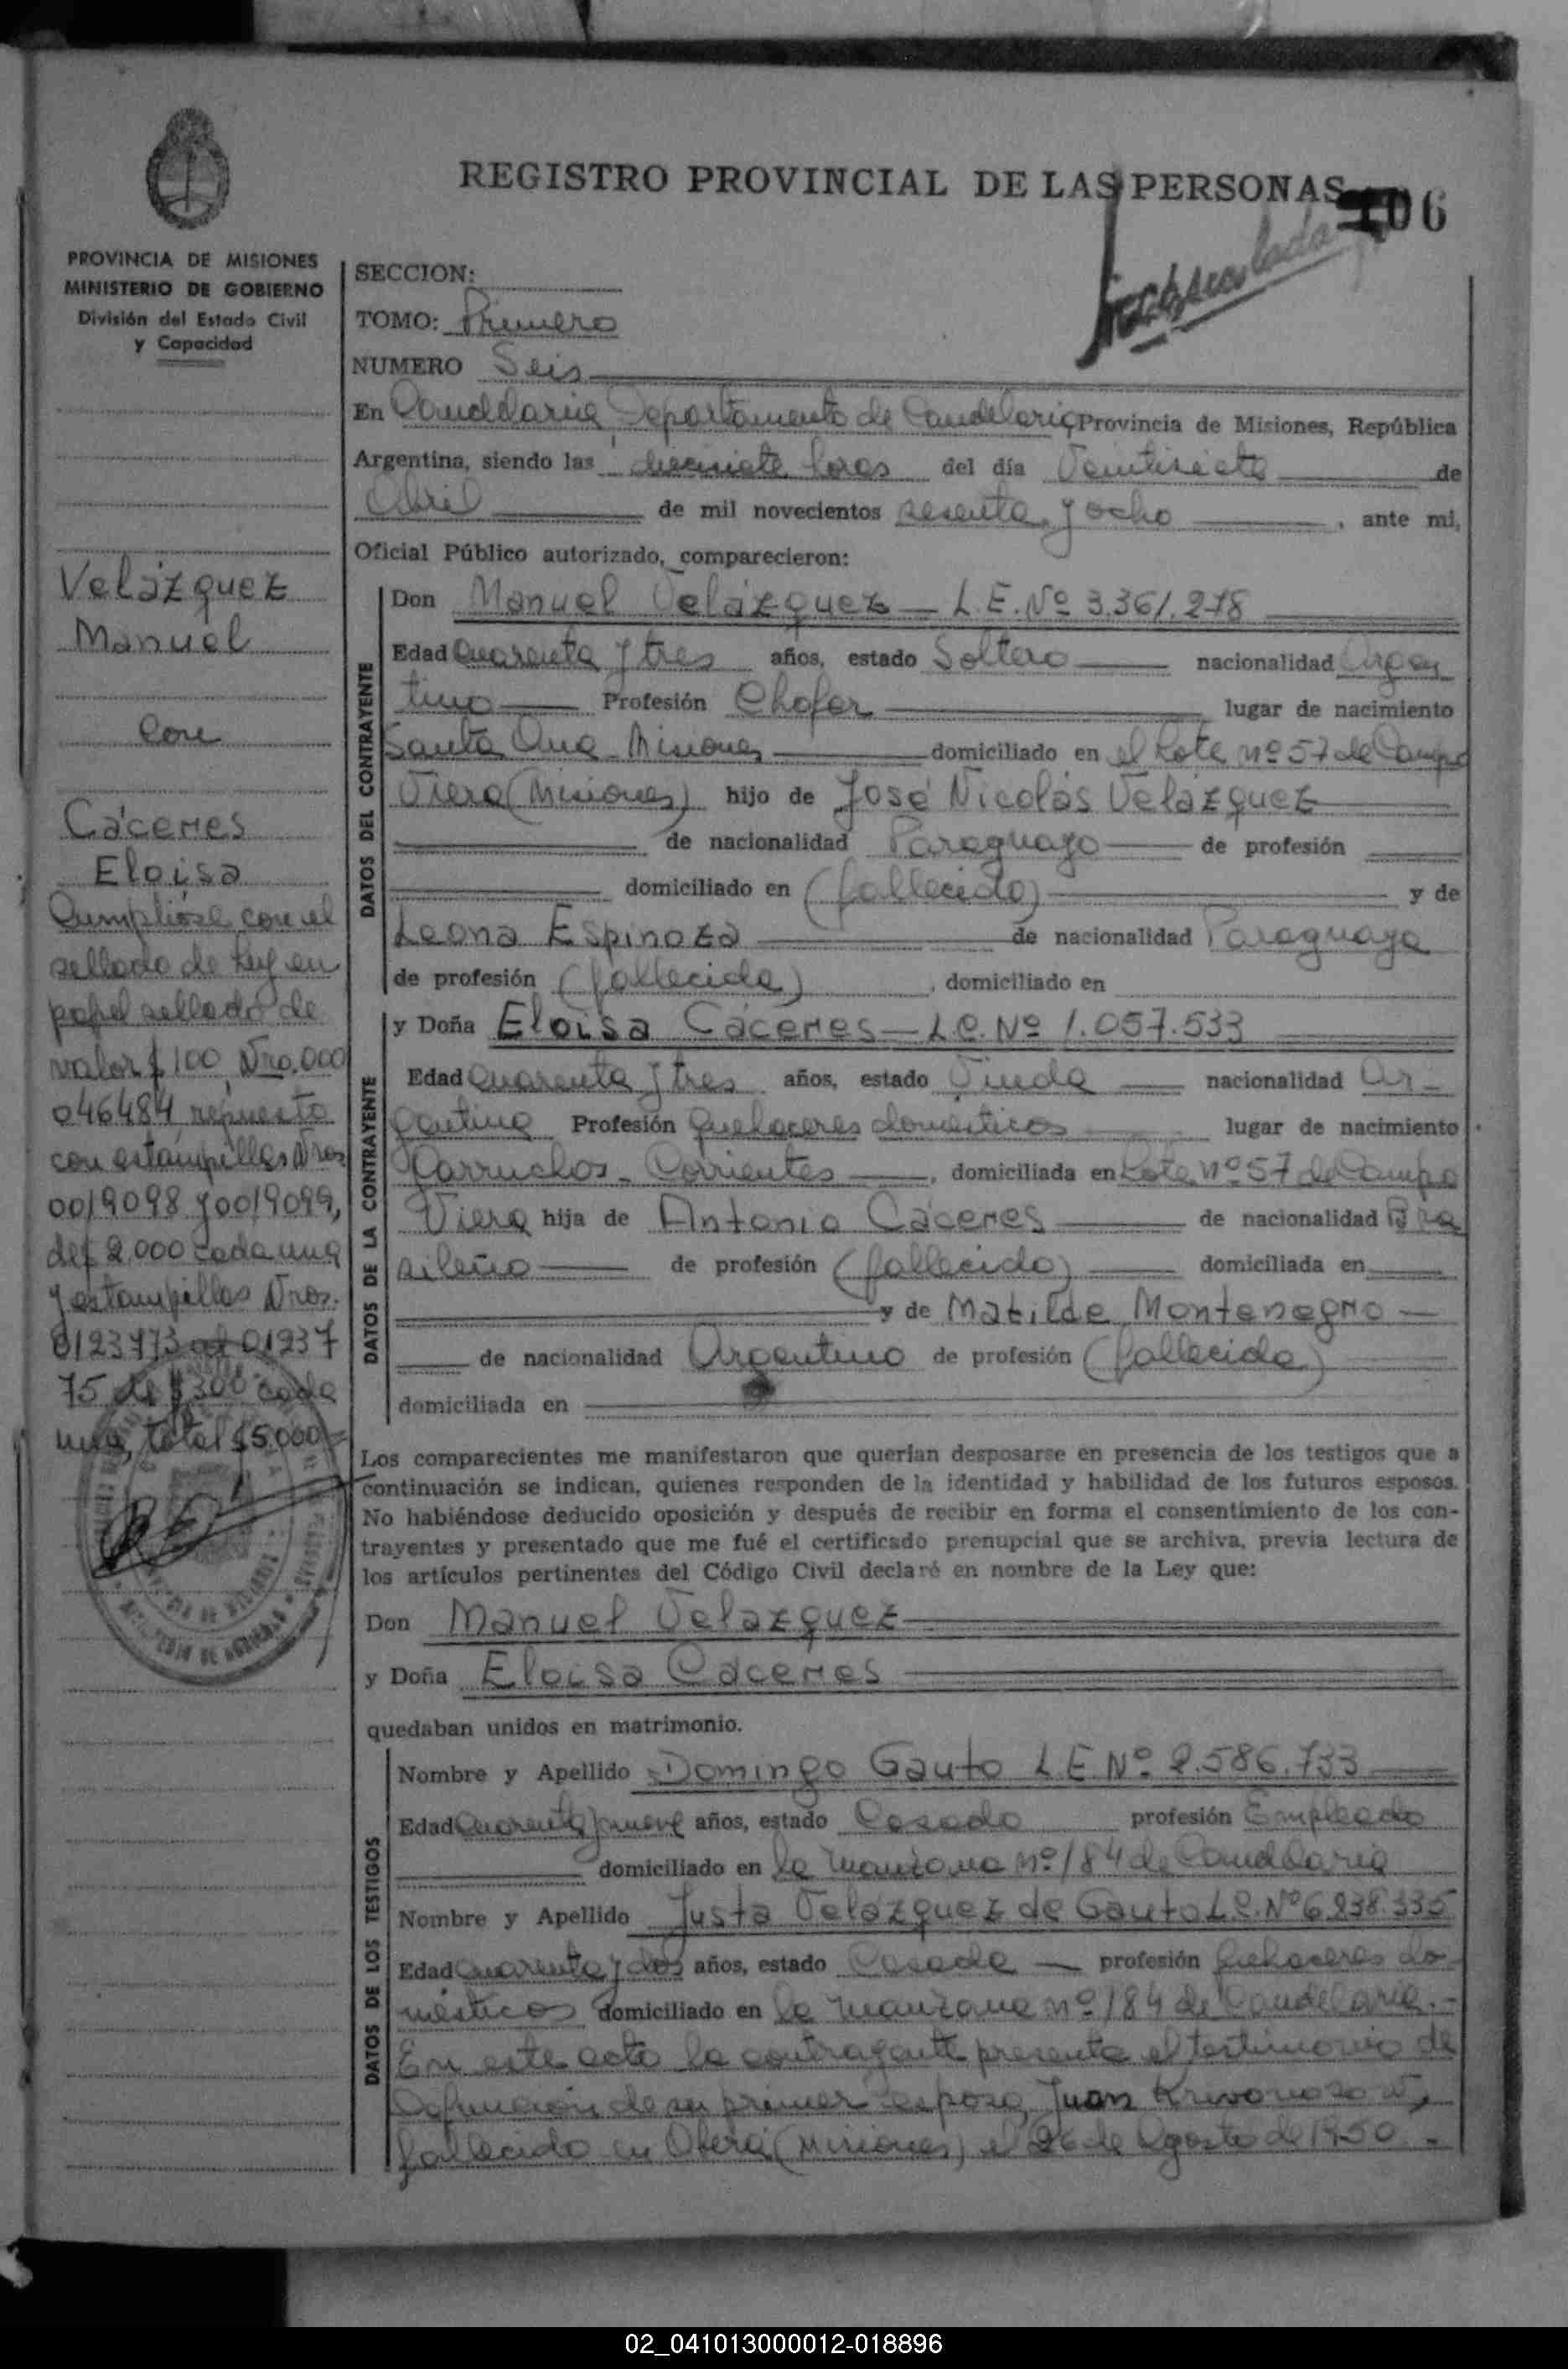 REGISTRO PROVINCIAL DE LAS PERSONAS
106
PROVINCIA DE MISIONES
MINISTERIO DE GOBIERNO
División del Estado Civil
y Capacidad
SECCION:
TOMO: Primero
NUMERO Seis
En Candelaria, Departamento de Candelaria, Provincia de Misiones, República
Argentina, siendo las diecisiete horas del día Veintisiete de
Abril de mil novecientos sesenta y ocho, ante mi,
Oficial Público autorizado, comparecieron:
Velázquez
Manuel
Con
Cáceres
Eloisa
Cumplióse con el
sellado de Ley en
papel sellado de
valor $ 100, Nro. 000
046484 repuesto
con estampillas Nros
0019098 y 0019099,
de $ 2.000 cada una
y estampillas Nros.
0123773 al 01237
75 de $ 300 cada
una, total $ 5.000
DATOS DEL CONTRAYENTE
Don Manuel Velázquez - L.E. Nº 3.361.278
Edad Cuarenta y tres años, estado Soltero nacionalidad Argen
tino Profesión Chofer lugar de nacimiento
Santa Ana - Misiones domiciliado en el Lote nº 57 de Campo
Viera (Misiones) hijo de José Nicolás Velázquez
de nacionalidad Paraguayo de profesión
domiciliado en (fallecido) y de
Leona Espinoza de nacionalidad Paraguaya
de profesión (fallecida), domiciliado en
DATOS DE LA CONTRAYENTE
y Doña Eloisa Cáceres - L.C. Nº 1.057.533
Edad Cuarenta y tres años, estado Viuda nacionalidad Ar-
gentina Profesión Quehaceres domésticos lugar de nacimiento
Garruchos - Corrientes, domiciliada en Lote nº 57 de Campo
Viera hija de Antonio Cáceres de nacionalidad Bra
sileño de profesión (fallecido) domiciliada en
y de Matilde Montenegro
de nacionalidad Argentino de profesión (fallecida)
domiciliada en
Los comparecientes me manifestaron que querían desposarse en presencia de los testigos que a
continuación se indican, quienes responden de la identidad y habilidad de los futuros esposos.
No habiéndose deducido oposición y después de recibir en forma el consentimiento de los con-
trayentes y presentado que me fué el certificado prenupcial que se archiva, previa lectura de
los artículos pertinentes del Código Civil declaré en nombre de la Ley que:
Don Manuel Velazquez
y Doña Eloisa Cáceres
quedaban unidos en matrimonio.
DATOS DE LOS TESTIGOS
Nombre y Apellido Domingo Gauto L.E. Nº 2.586.733
Edad Cuarenta y nueve años, estado Casado profesión Empleado
domiciliado en la manzana nº 184 de Candelaria
Nombre y Apellido Justa Velázquez de Gauto L.C. Nº 6.838.335
Edad Cuarenta y dos años, estado Casada profesión Quehaceres do-
mésticos domiciliado en la manzana nº 184 de Candelaria.-
En este acto la contrayente presenta el testimonio de
Defunción de su primer esposo, Juan
fallecido en Oberá (Misiones) el 26 de Agosto de 1950.-
02_041013000012-018896